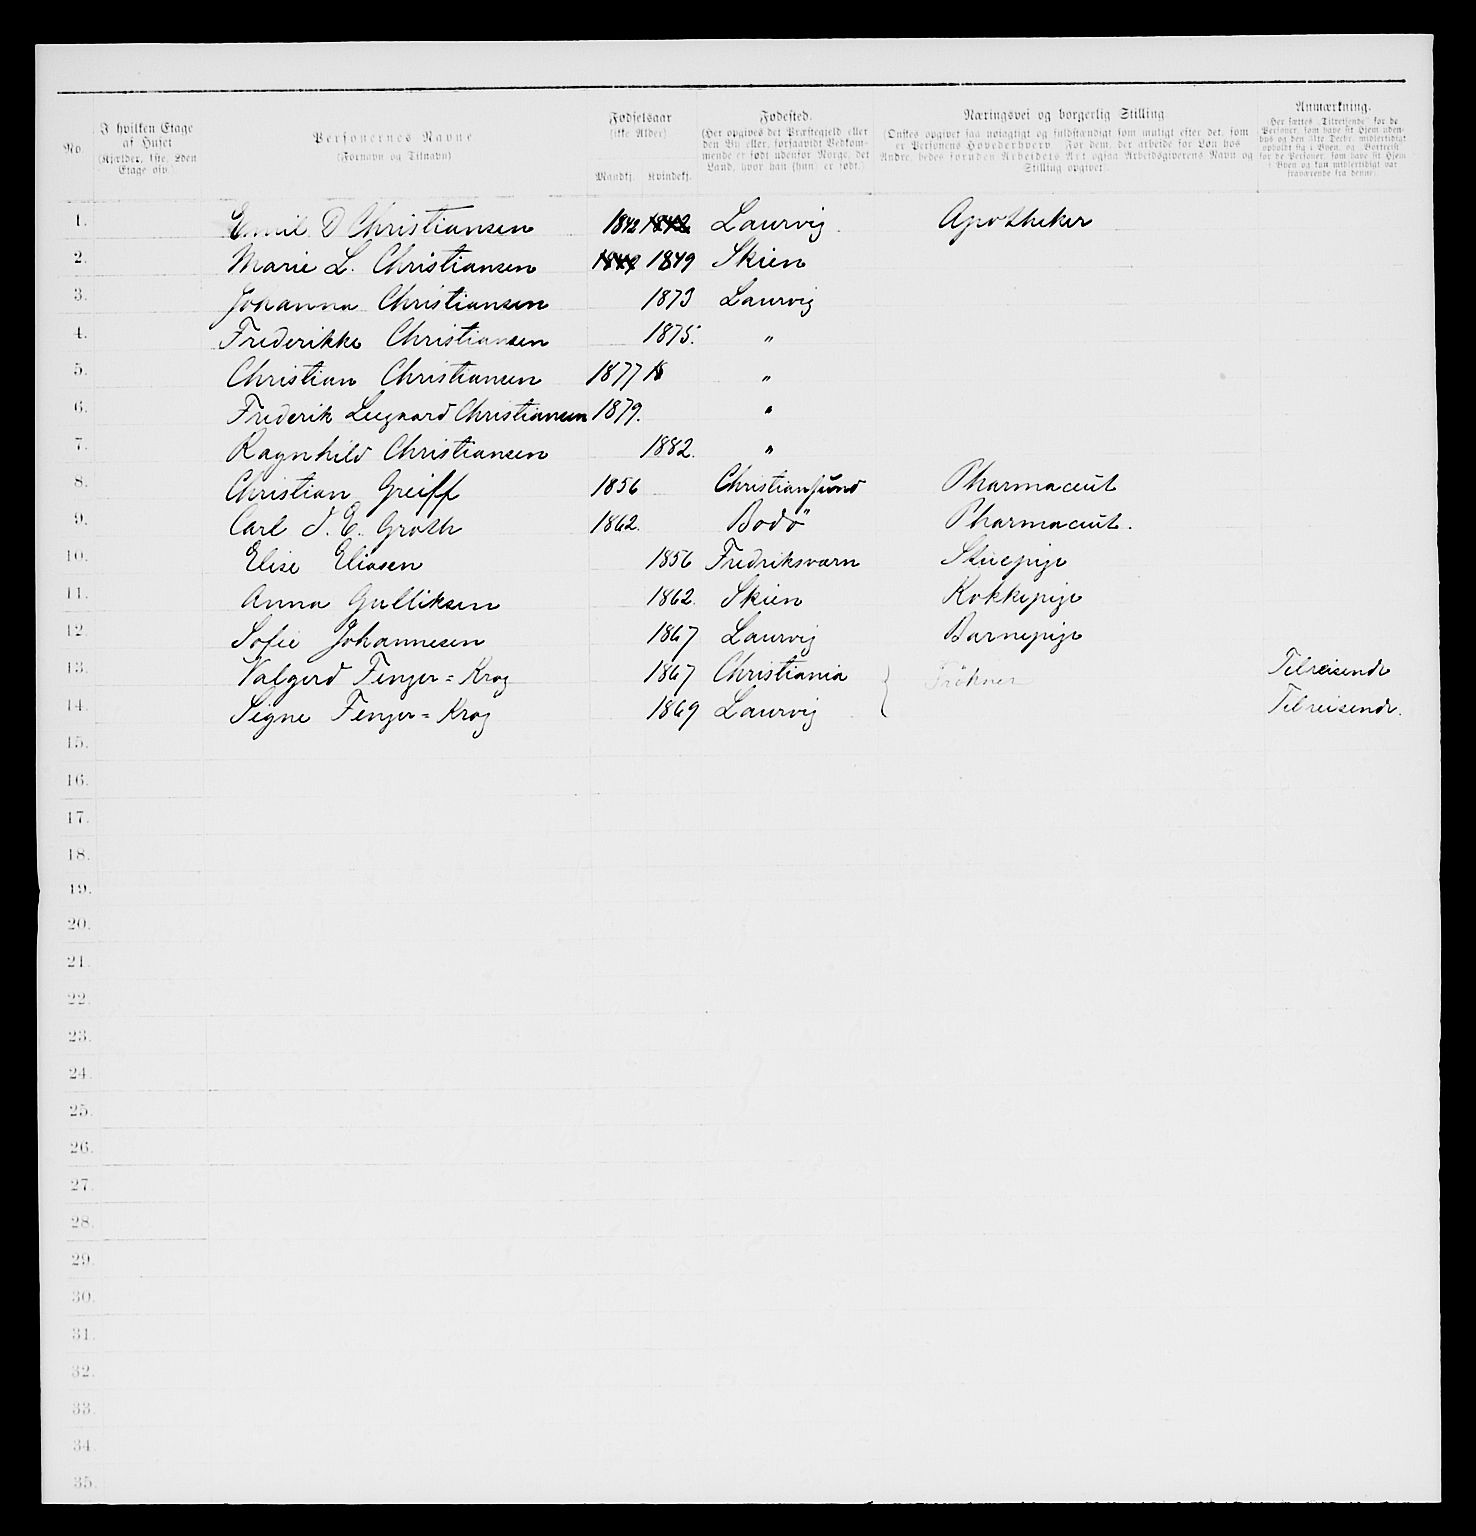 No.
I hvilken Etage af Huset (Kjælder, 1ste, 2den Etage osv.)
Personernes Navne (Fornavn og Tilnavn)
Fødselsaar (ikke Alder) Mandkj. Kvindekj.
Fødested. (Her opgives det Præstegjeld eller den By eller, forsaavidt Vedkommende er født udenfor Norge, det Land, hvor han (hun) er født.)
Næringsvei og borgerlig Stilling (Ønskes opgivet saa nøiagtigt og fuldstændigt som muligt efter det, som er Personens Hovederhverv. For dem, der arbeide for Løn hos Andre, bedes foruden Arbeidets Art ogsaa Arbeidsgiverens Navn og Stilling opgivet.)
Anmærkning. (Her sættes „Tilreisende" for de Personer, som have sit Hjem udenbys og den 31te Decbr. midlertidigt opholdt sig i Byen, og „Bortreist" for de Personer, som have sit Hjem i Byen og kun midlertidigt var fraværende fra denne).
1. Emil D Christiansen 1842 1842 Laurvig. Apotheker
2. Marie L. Christiansen 1849 1849 Skien
3. Johanna Christiansen 1873 Laurvig
4. Frederikke Christiansen 1875. "
5. Christian Christiansen 1877 18 "
6. Frederik Christiansen 1879. "
7. Ragnhild Christiansen 1882. "
8. Christian Greiff 1856 Christiansund Pharmaceut
9. Carl J. E. Groth 1862. Bodö Pharmaceut.
10. Elise Eliasen 1856 Fredriksværn Stuepige
11. Anna Gulliksen 1862. Skien Kokkepige
12. Sofie Johannesen 1867 Laurvig Barnepige
13. Valgerd Fenger=Krog 1867 Christiania Frökner Tilreisende
14. Signe Fenger=Krog 1869 Laurvig Tilreisende.
15.
16.
17.
18.
19.
20.
21.
22.
23.
24.
25.
26.
27.
28.
29.
30.
31.
32.
33.
34.
35.